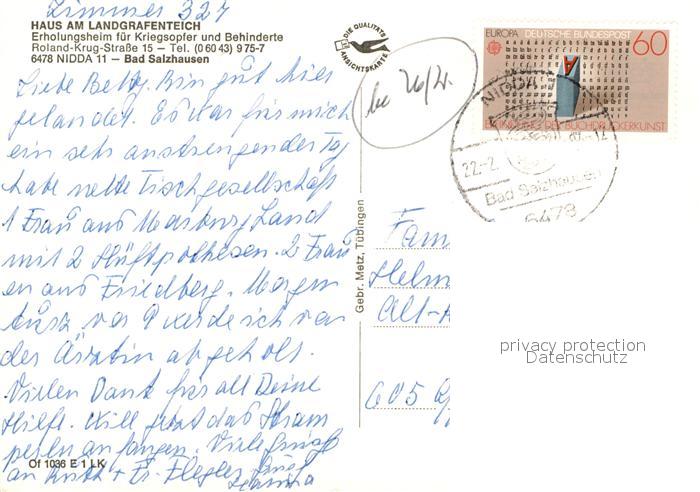 Zimmer 327
HAUS AM LANDGRAFENTEICH
Erholungsheim für Kriegsopfer und Behinderte
Roland-Krug-Straße 15 — Tel. (0 60 43) 9 75-7
6478 NIDDA 11 — Bad Salzhausen
Liebe Betty. Bin gut hier
gelandet. Es war für mich
ein sehr anstrengender Tag
habe nette Tischgesellschaft
1 Frau aus Marburg Land
mit 2 Hüftprothesen. 2 Frau
en aus Friedberg. Morgen
kurz vor 9 werde ich von
der Ärztin abgeholt.
Vielen Dank für all Deine
Hilfe. Will jetzt das
an fangen. Viele
an Ruth + Fr.
Of 1036 E 1 LK
DIE QUALITÄTS
ANSICHTSKARTE
26/2.
Gebr. Metz, Tübingen
EUROPA DEUTSCHE BUNDESPOST 60
ERFINDUNG DES BUCHDRUCKERKUNST
NIDDA
22.-2
Bad Salzhausen
6478
Fam
Helm
Alt-
605
privacy protection
Datenschutz